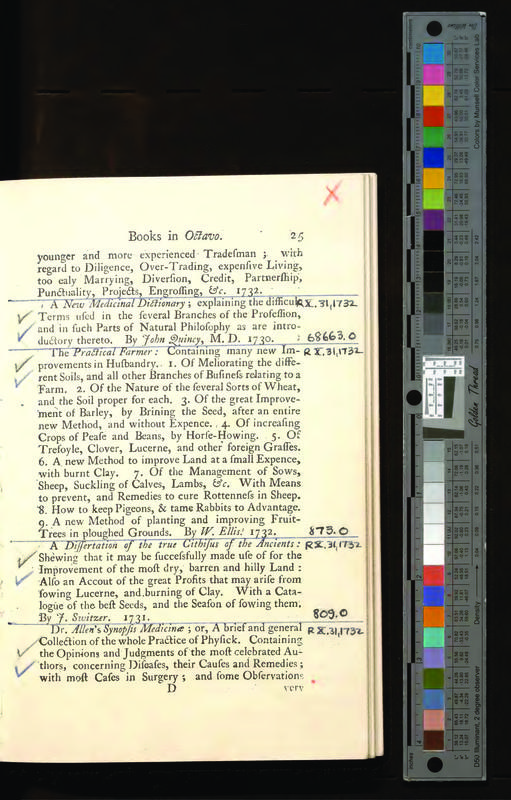 Books in Octavo. 25
younger and more experienced Tradeſman ; with
regard to Diligence, Over-Trading, expenſive Living,
too ealy Marrying, Diverſion, Credit, Partnerſhip,
Punctuality, Projects, Engroſſing, &c. 1732.
A New Medicinal Dictionary ; explaining the difficul RX.31,1732
Terms uſed in the ſeveral Branches of the Profeſſion,
and in ſuch Parts of Natural Philoſophy as are intro-
ductory thereto. By John Quincy, M. D. 1730. 68663.0
The Practical Farmer : Containing many new Im- RX.31,1732
provements in Huſbandry. 1. Of Meliorating the diffe-
rent Soils, and all other Branches of Buſineſs relating to a
Farm. 2. Of the Nature of the ſeveral Sorts of Wheat,
and the Soil proper for each. 3. Of the great Improve-
ment of Barley, by Brining the Seed, after an entire
new Method, and without Expence. 4. Of increaſing
Crops of Peaſe and Beans, by Horſe-Howing. 5. Of
Trefoyle, Clover, Lucerne, and other foreign Graſſes.
6. A new Method to improve Land at a ſmall Expence,
with burnt Clay. 7. Of the Management of Sows,
Sheep, Suckling of Calves, Lambs, &c. With Means
to prevent, and Remedies to cure Rottenneſs in Sheep.
8. How to keep Pigeons, & tame Rabbits to Advantage.
9. A new Method of planting and improving Fruit-
Trees in ploughed Grounds. By W. Ellis. 1732. 875.0
A Diſſertation of the true Cithiſus of the Ancients : RX.31,1732
Shewing that it may be ſucceſsfully made uſe of for the
Improvement of the moſt dry, barren and hilly Land :
Alſo an Accout of the great Profits that may ariſe from
ſowing Lucerne, and burning of Clay. With a Cata-
logue of the beſt Seeds, and the Seaſon of ſowing them.
By J. Switzer. 1731. 809.0
Dr. Allen's Synopſis Medicinæ ; or, A brief and general RX.31,1732
Collection of the whole Practice of Phyſick. Containing
the Opinions and Judgments of the moſt celebrated Au-
thors, concerning Diſeaſes, their Cauſes and Remedies ;
with moſt Caſes in Surgery ; and ſome Obſervations
D very
Colors by Munsell Color Services Lab
Golden Thread
Density
D50 Illuminant, 2 degree observer